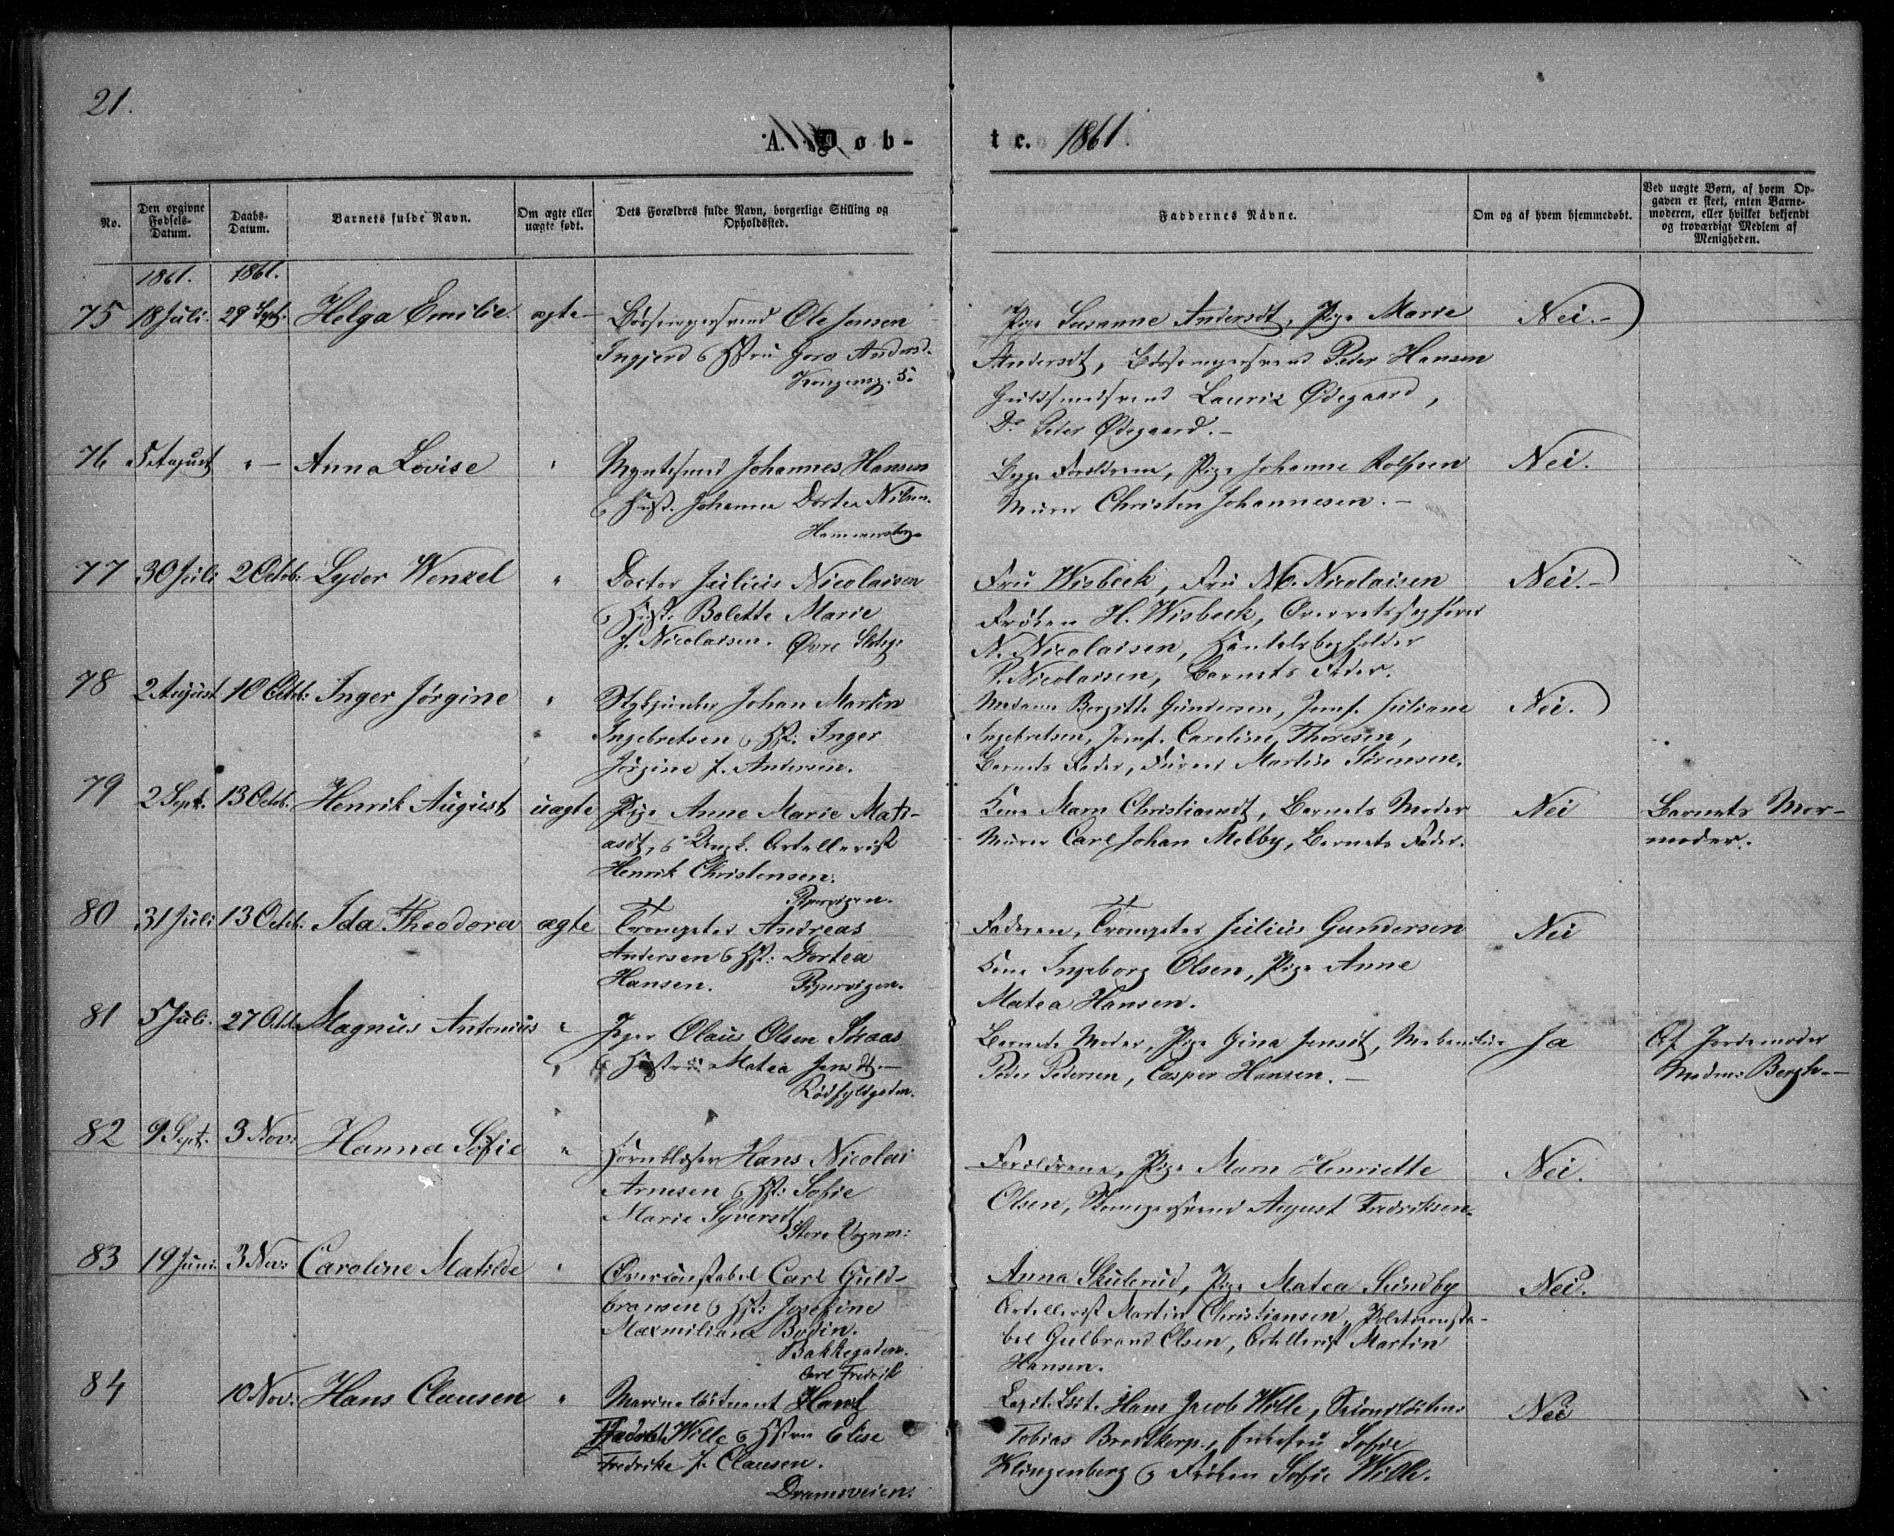 21.
A. Døb-
t c. 1861.
No.
Den opgivne Fødsels-Datum.
Daabs-Datum.
Barnets fulde Navn.
Om ægte eller uægte født.
Dets Forældres fulde Navn, borgerlige Stilling og Opholdssted.
Faddernes Navne.
Om og af hvem hjemmedøbt.
Ved uægte Børn, af hvem Opgaven er skeet, enten Barnemoderen, eller hvilket bekjendt og troværdigt Medlem af Menigheden.
1861. 1861.
75 18 Juli. 29 Sept. Helga Emilie. ægte Ole Jensen
Ingjerd & Hstru Goro Andersd.
Kongensg. 5.
Pige Susanne Andersdt, Pige Marie Nei.
Andersdt, Peder Hansen
Guldsmedsvend Lauriz Ødegaard,
Do Peder Ødegaard.
76 5 August " Anna Lovise " Myntsmed Johannes Hansen
& Hust. Johanne Dortea Nilsen.
Hammersborg
Begge Forældrene, Pige Johanne Rolfsen Nei.
Murer Christen Johannesen.
77 30 Juli 2 Octob: Lyder Wenzel " Doctor Julius Nicolaisen
& Hust: Bolette Marie
f. Nicolaisen. Øvre Slotsg.
Fru Wisbeck, Fru M. Nicolaisen Nei.
Frøken H. Wisbeck, Overretssagfører
N. Nicolaisen, Handelsbogholder
P. Nicolaisen, Barnets Fader.
78 2 August 10 Octb: Inger Jørgine " Stykjunker Johan Martin
Ingebretsen & Hst. Inger
Jørgine f. Andersen.
Madame Birgitte Gundersen, Jomf. Juliane Nei.
Ingebretsen, Jomf. Caroline Thoresen,
Barnets Fader, Furer Martin Sørensen.
79 2 Sept. 13 Octb. Henrik August uægte Pige Anne Marie Mats-
asdt, & Ungk. Artellerist
Henrik Christensen.
Pipervigen.
Kone Maren Christiansdt, Barnets Moder Nei Barnets Mor-
Murer Carl Johan Melby, Barnets Fader. moder.
80 31 Juli 13 Octb: Ida Theodora ægte Trompeter Andreas
Andersen & Hst: Dortea
Hansen. Pipervigen.
Faderen, Trompeter Julius Gundersen Nei
Kone Ingeborg Olsen, Pige Anne
Matea Hansen.
81 5 Juli. 27 Octb. Magnus Antonius " Jæger Olaus Olsen
& Hustru Matea Jensdt.
Rødfyldgaden.
Barnets Moder, Pige Gina Jensdt, Ja Af Jordemoder
Peder Pedersen, Casper Hansen. Madme Bergh
82 9 Sept. 3 Nov: Hanna Sofie " Hornblæser Hans Nicolai
Arnesen & Hst: Sofie
Marie Syversdt
Store Vognm:
Forældrene, Pige Maren Henriette Nei.
Olsen, August Fredriksen.
83 19 Juni. 3 Nov: Caroline Matilde " Overconstabel Carl Guld-
bransen & Hst: Josefine
Maxmiliana Bodin.
Bakkegaden.
Anna Skulerud, Pige Matea Sundby Nei.
Artellerist Martin Christiansen, Politiconsta-
bel Gulbrand Olsen, Artellerist Martin
Hansen.
84 10 Nov: Hans Clausen " Marinelieutnant
Carl Fredrik
Wille & Hstru Elise
Fredrikke f. Clausen.
Dramsveien.
Hans Jacob Wille, Nei
Tobias Brodtkorp, Sofie
Klingenberg & Frøken Sofie Wille.